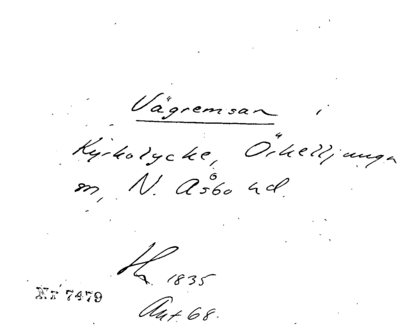 Vägremsan i
Kyrkolycke, Örkelljunga
sn, N. Åsbo hd.
1835
Nr 7479
Ant. 68.